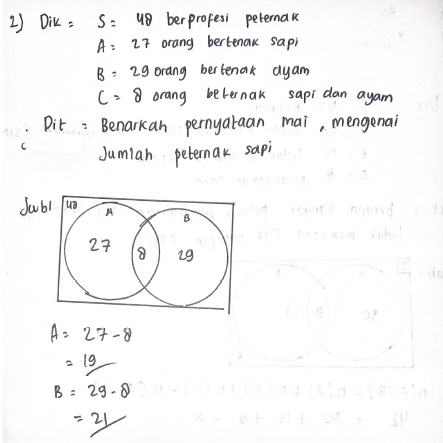 2) Dik = S = 48 berprofesi peternak
A = 27 orang bertenak sapi
B = 29 orang bertenak ayam
C = 8 orang beternak sapi dan ayam
Dit = Benarkah pernyataan mai, mengenai
Jumlah peternak sapi
Jwbl
48
A B
27 8 29
A = 27 - 8
= 19
B = 29 - 8
= 21